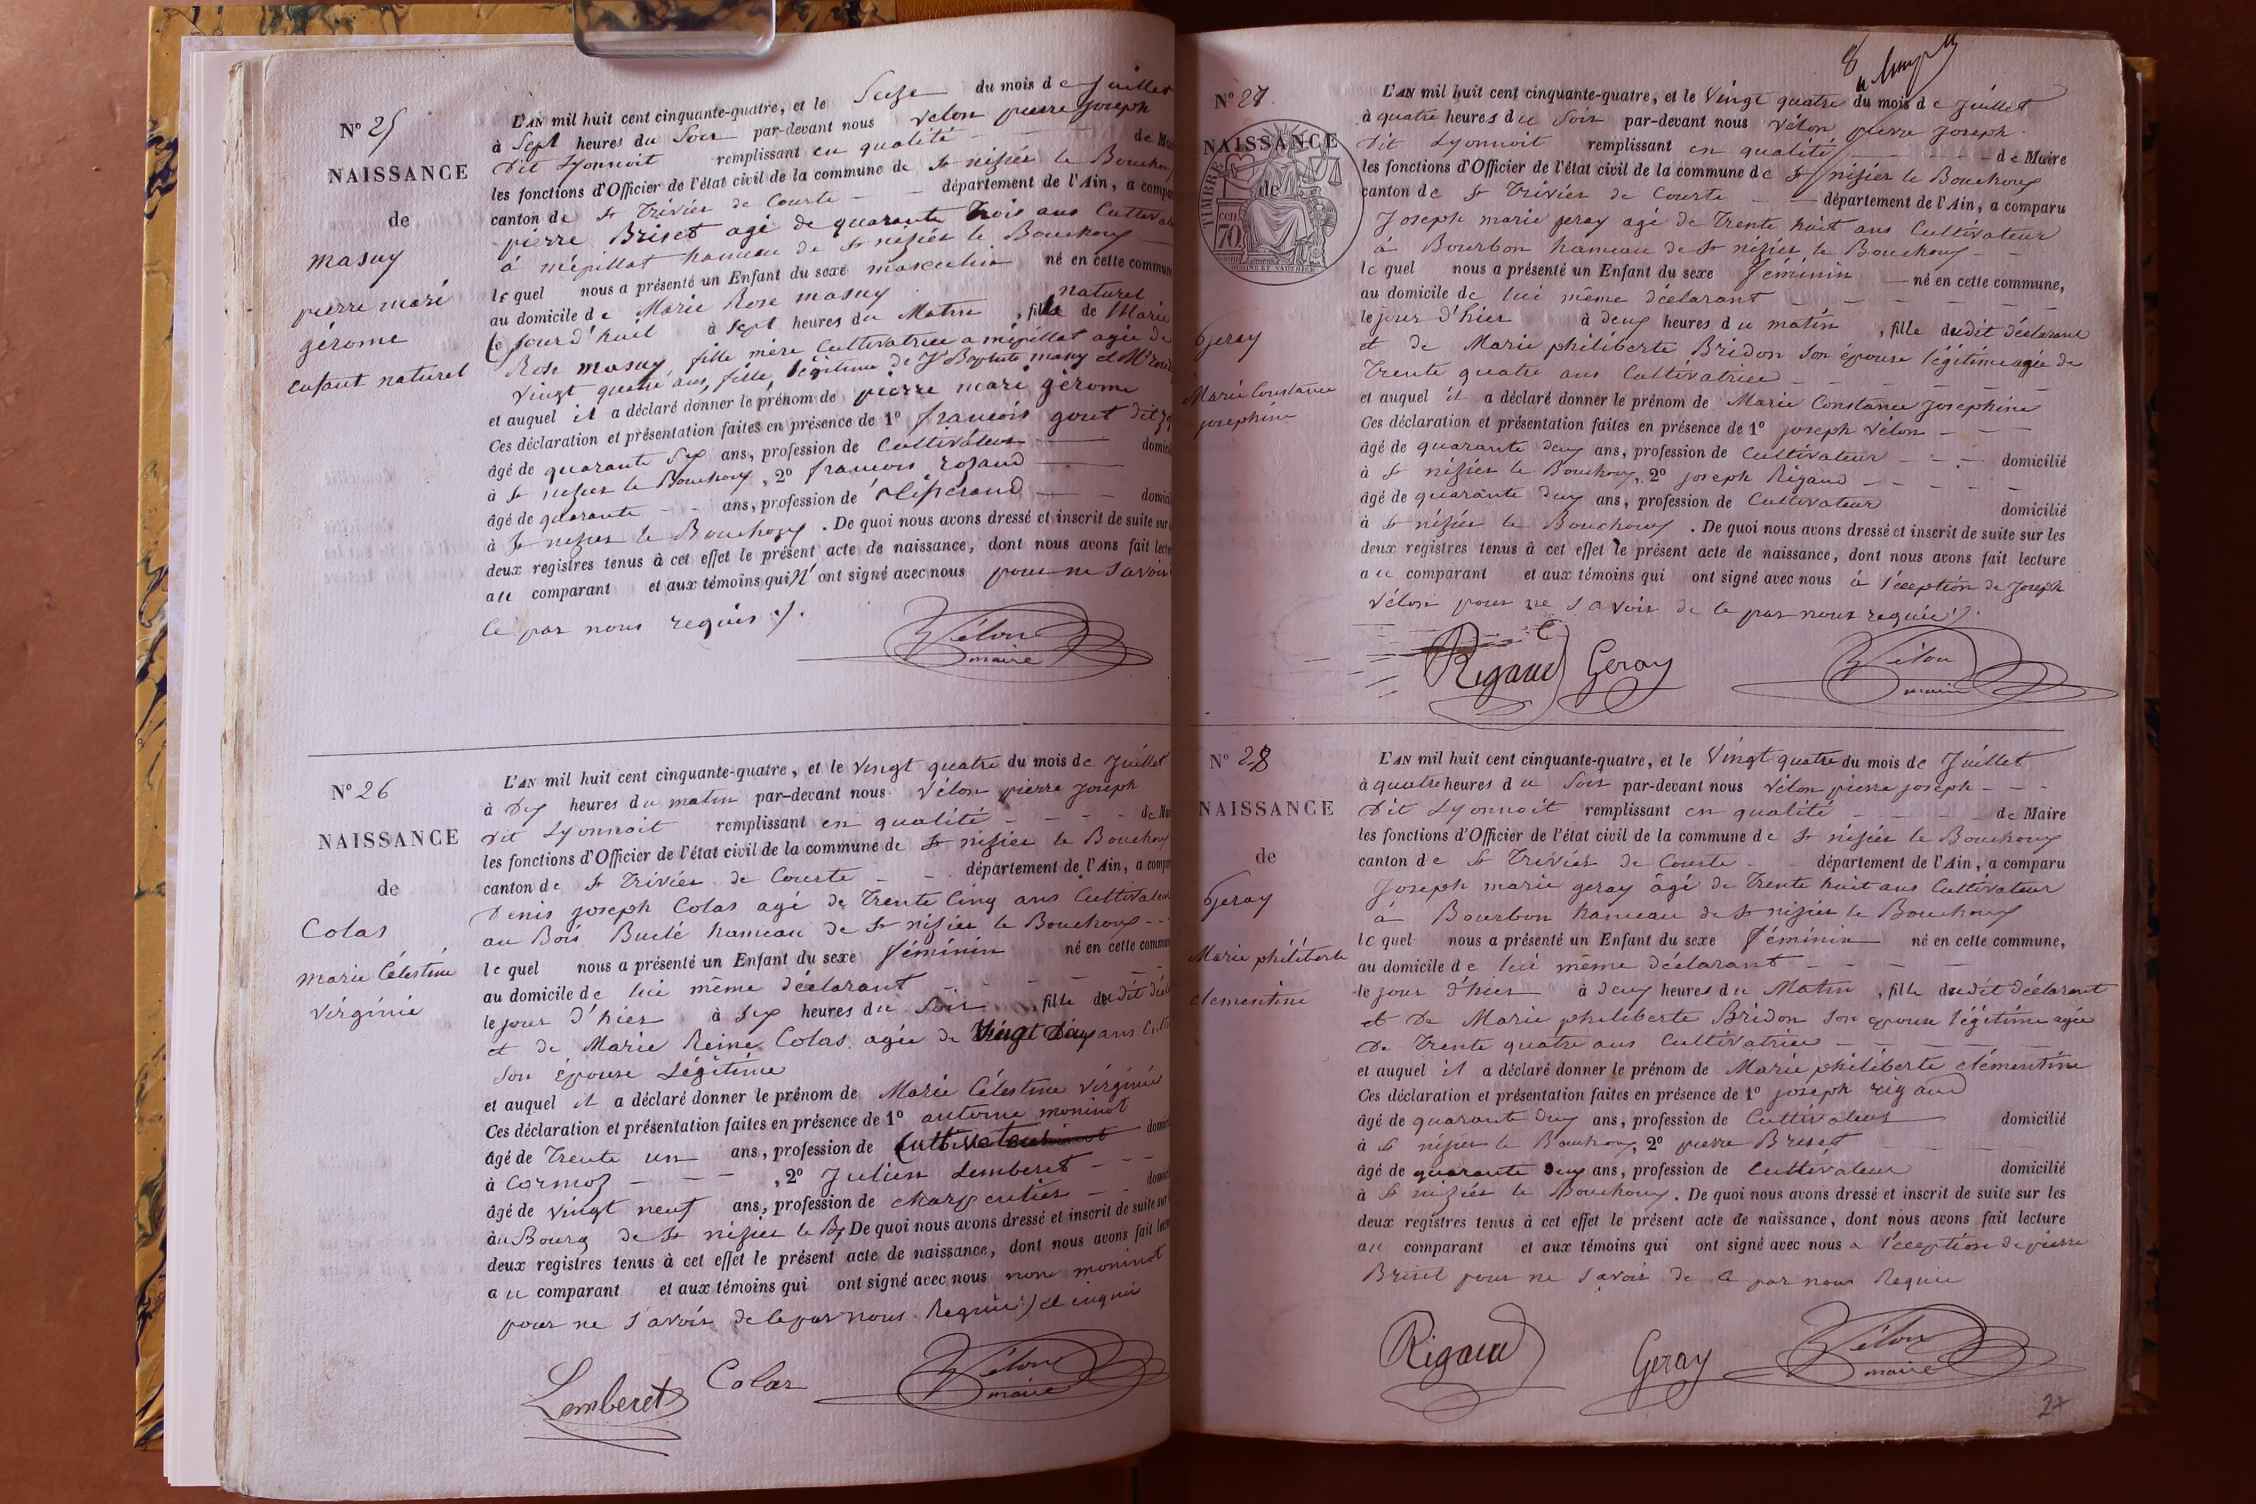 N° 25
NAISSANCE
de
masuy
pierre marie
gérome
enfant naturel
L'AN mil huit cent cinquante-quatre, et le Seize du mois de Juillet
à Sept heures du Soir par-devant nous Vélon pierre Joseph
Dit Lyonnoit remplissant en qualité de
les fonctions d'Officier de l'état civil de la commune de St nizier le Bouchoux
canton de St Trivier de Courte — département de l'Ain, a
pierre Briset agé de quarante trois ans
à mépillat hameau de St nizier le Bouchoux —
lequel nous a présenté un Enfant du sexe masculin né en cette
au domicile de Marie Rose masuy naturel
le jour d'huit à Sept heures du Matin , fils de Marie
Rose masuy fille mère Cultivatrice a mépillat agée de
vingt quatre ans, fille légitime de Jn Baptiste masuy et
et auquel il a déclaré donner le prénom de pierre marie gérome
Ces déclaration et présentation faites en présence de 1° francois gout dit
âgé de quarante Six ans, profession de Cultivateur —
à St nizier le Bouchoux , 2° francois rozand —
âgé de quarante - - ans, profession de Tisserand — -
à St nizier le Bouchoux . De quoi nous avons dressé et inscrit de suite sur
deux registres tenus à cet effet le présent acte de naissance, dont nous avons fait
au comparant et aux témoins qui n'ont signé avec nous pour ne savoir
ce par nous requis ./.
Vélon
maire
N° 26
NAISSANCE
de
Colas
marie Célestine
virginie
L'AN mil huit cent cinquante-quatre, et le vingt quatre du mois de Juillet
à Dix heures du matin par-devant nous Vélon pierre Joseph
Dit Lyonnoit remplissant en qualité - - - - de
les fonctions d'Officier de l'état civil de la commune de St nizier le Bouchoux
canton de St Trivier de Courte - - département de l'Ain, a
Denis joseph Colas agé de Trente Cinq ans Cultivateur
au Bois Buclé hameau de St nizier le Bouchoux - -
lequel nous a présenté un Enfant du sexe féminin né en cette
au domicile de lui même déclarant - - - -
le jour d'hier à Six heures du Soir , fille dudit
et de Marie Reine Colas agée de Vingt deux ans
Son épouse Légitime
et auquel il a déclaré donner le prénom de Marie Célestine virginie
Ces déclaration et présentation faites en présence de 1° antoine moninot
âgé de Trente un ans, profession de Cultivateur
à Cormoz - - - , 2° Julien Lemberet - - -
âgé de vingt neuf ans, profession de charpentier - -
au Bourg de St nizier le Bx De quoi nous avons dressé et inscrit de suite sur
deux registres tenus à cet effet le présent acte de naissance, dont nous avons fait
au comparant et aux témoins qui ont signé avec nous non moninot
pour ne savoir de ce par nous Requis ./.
Lemberet Colas Vélon
maire
N° 27
NAISSANCE
de
TIMBRE
70
Geray
Marie Constance
josephine
L'AN mil huit cent cinquante-quatre, et le Vingt quatre du mois de Juillet
à quatre heures du Soir par-devant nous Vélon pierre Joseph -
Dit Lyonnoit remplissant en qualité - - - de Maire
les fonctions d'Officier de l'état civil de la commune de St nizier le Bouchoux
canton de St Trivier de Courte - — département de l'Ain, a comparu
Joseph marie geray agé de Trente huit ans Cultivateur
à Bourbon hameau de St nizier le Bouchoux - -
lequel nous a présenté un Enfant du sexe féminin — né en cette commune,
au domicile de lui même déclarant - - - - -
le jour d'hier à deux heures du matin , fille dudit déclarant
et de Marie philiberte Bridon Son épouse légitime agée de
Trente quatre ans Cultivatrice - - - - - -
et auquel il a déclaré donner le prénom de Marie Constance Josephine
Ces déclaration et présentation faites en présence de 1° joseph Vélon - - -
âgé de quarante deux ans, profession de Cultivateur - - - domicilié
à St nizier le Bouchoux, 2° joseph Rigaud - - - -
âgé de quarante deux ans, profession de Cultivateur domicilié
à St nizier le Bouchoux . De quoi nous avons dressé et inscrit de suite sur les
deux registres tenus à cet effet le présent acte de naissance, dont nous avons fait lecture
au comparant et aux témoins qui ont signé avec nous à l'éception de Joseph
Vélon pour ne savoir de ce par nous requis ./.
Rigaud Geray Vélon
maire
N° 28
NAISSANCE
de
Geray
Marie philiberte
clementine
L'AN mil huit cent cinquante-quatre, et le Vingt quatre du mois de Juillet
à quatre heures du Soir par-devant nous Vélon pierre joseph - - -
Dit Lyonnoit remplissant en qualité - - - de Maire
les fonctions d'Officier de l'état civil de la commune de St nizier le Bouchoux
canton de St Trivier de Courte - - département de l'Ain, a comparu
Joseph marie geray âgé de Trente huit ans Cultivateur
à Bourbon hameau de St nizier le Bouchoux
lequel nous a présenté un Enfant du sexe féminin — né en cette commune,
au domicile de lui même déclarant - - - -
le jour d'hier à deux heures du Matin , fille dudit déclarant
et De Marie philiberte Bridon Son epouse légitime agée
De Trente quatre ans Cultivatrice - - - - -
et auquel il a déclaré donner le prénom de Marie philiberte clémentine
Ces déclaration et présentation faites en présence de 1° joseph rigaud
âgé de quarante deux ans, profession de Cultivateur — domicilié
à St nizier le Bouchoux, 2° pierre Briset - - -
âgé de quarante deux ans, profession de Cultivateur domicilié
à St nizier le Bouchoux. De quoi nous avons dressé et inscrit de suite sur les
deux registres tenus à cet effet le présent acte de naissance, dont nous avons fait lecture
au comparant et aux témoins qui ont signé avec nous a l'éception de pierre
Briset pour ne savoir de ce par nous Requis
Rigaud Geray Vélon
maire
27